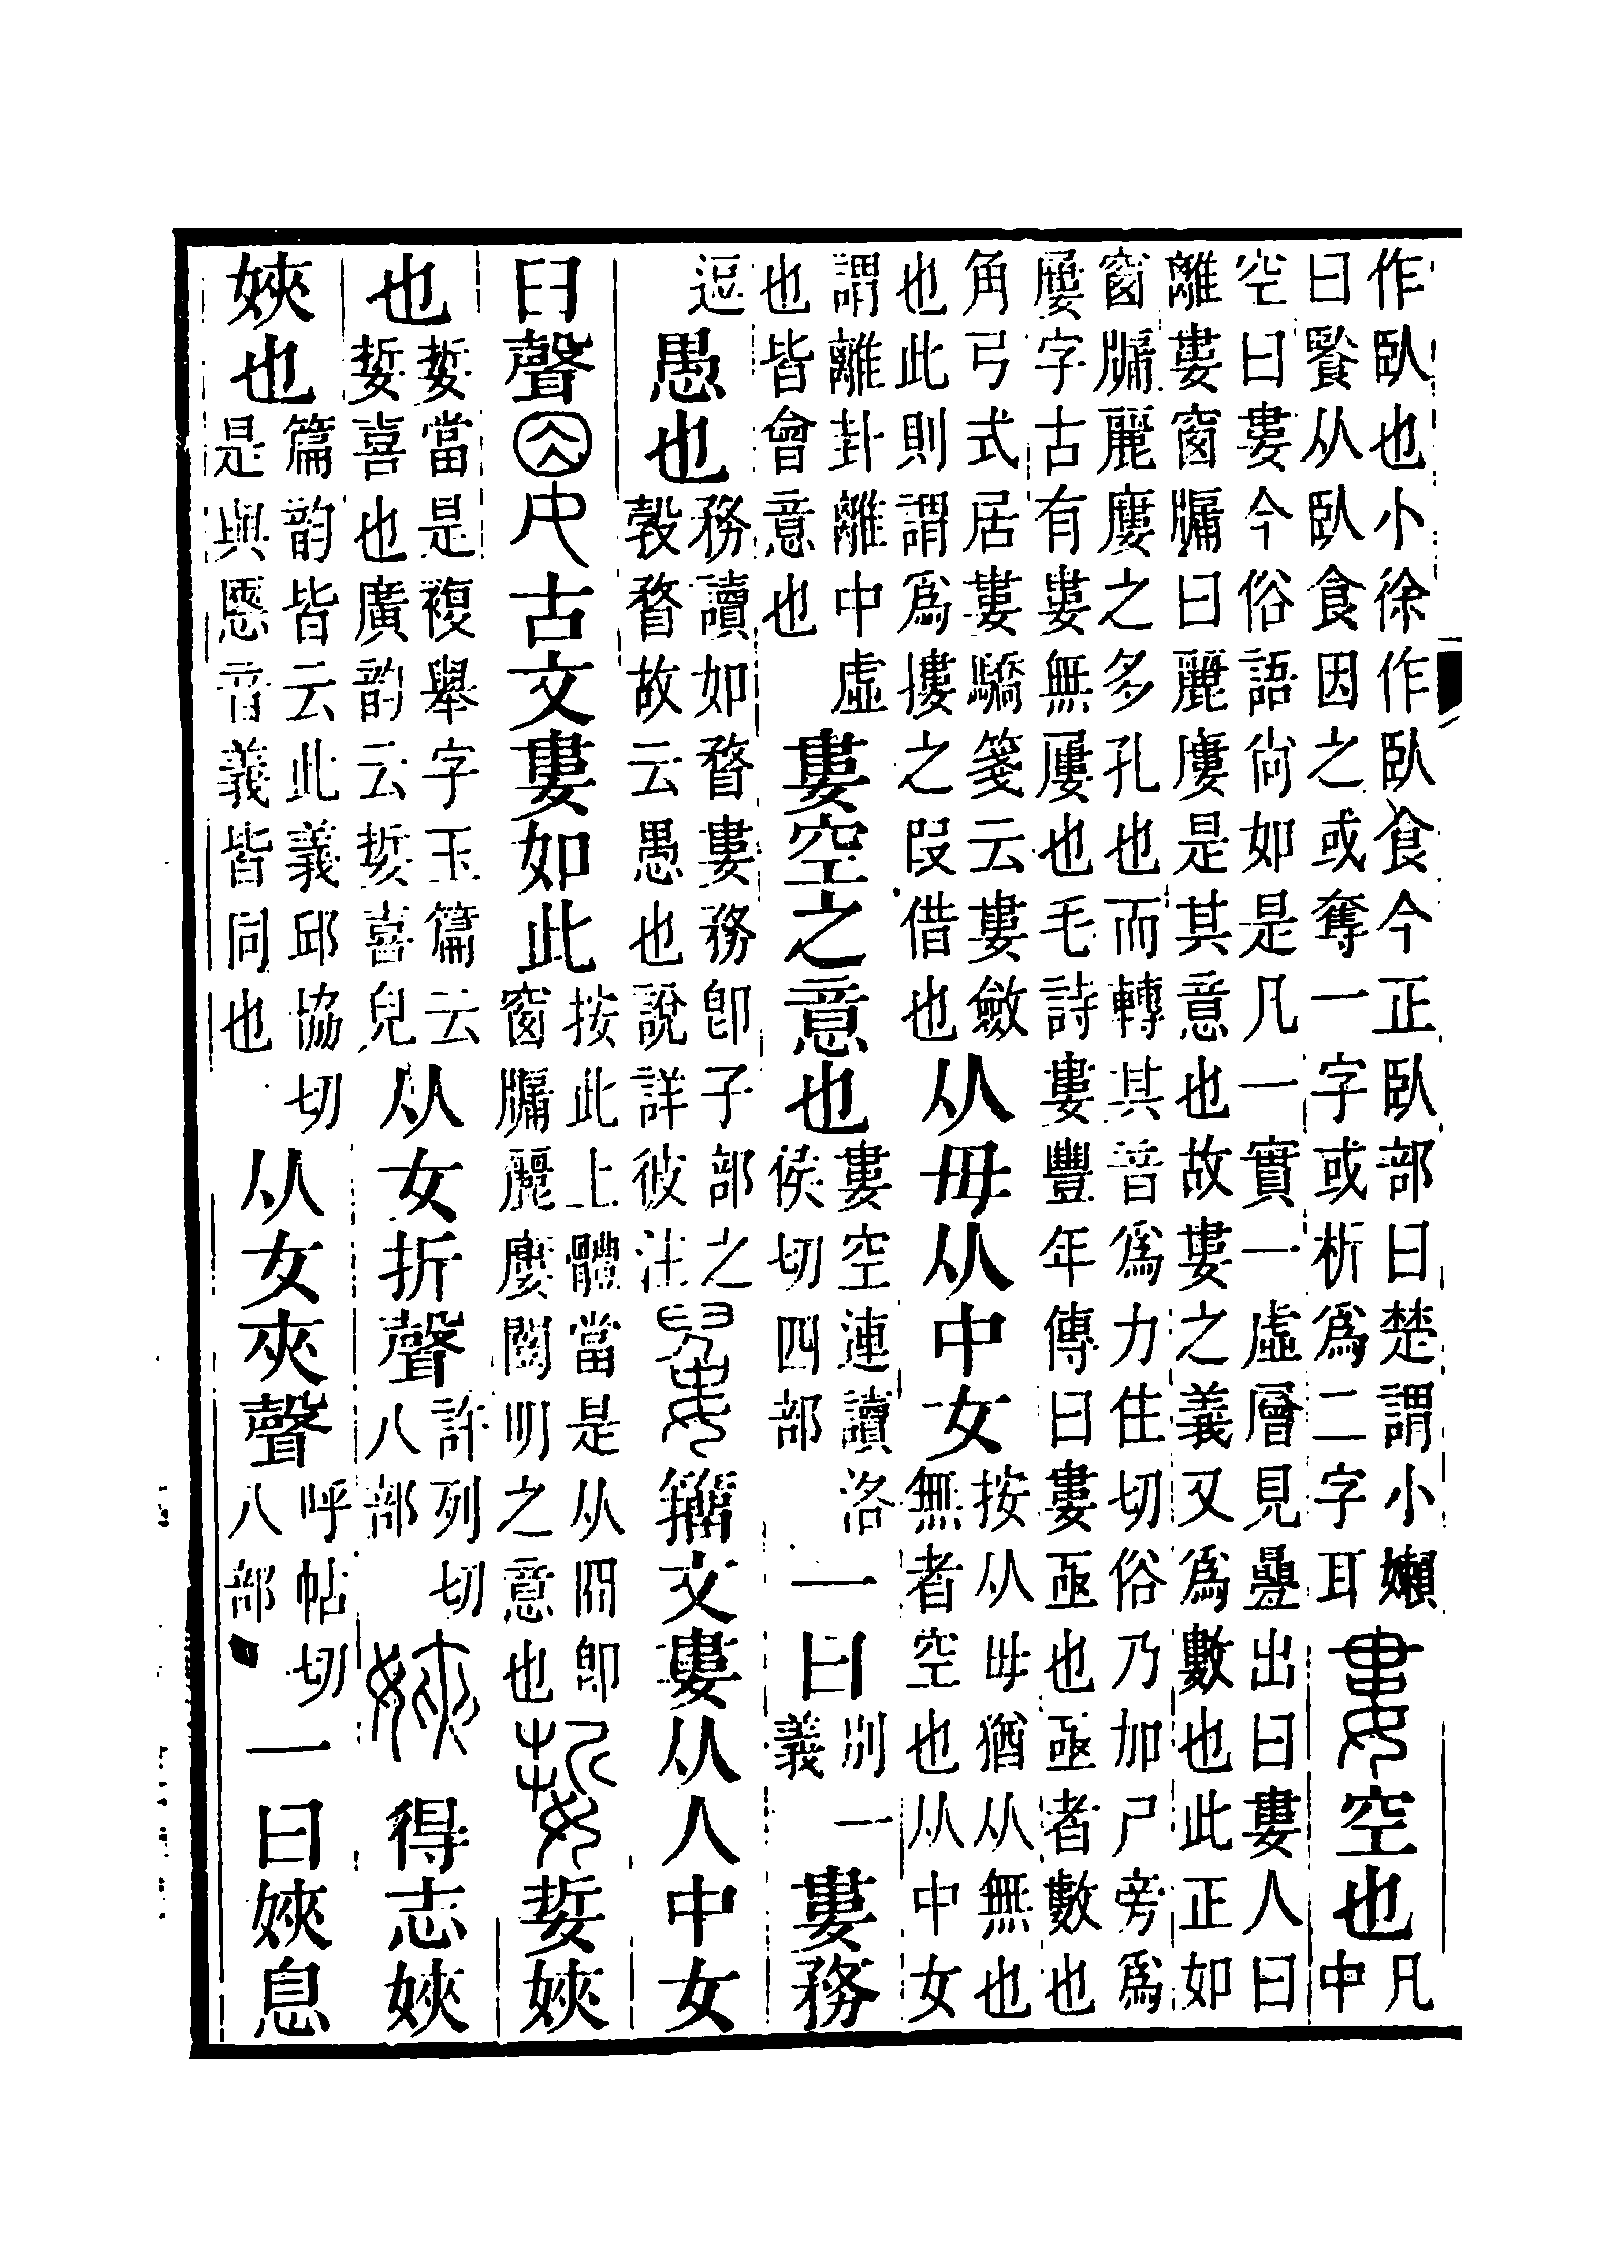 作臥也小徐作臥食今正臥部曰楚謂小嬾
曰䬳从臥食因之或奪一字或析爲二字耳
婁空也
凡
中
空曰婁今俗語尙如是凡一實一虛層見曡出曰婁人曰
離婁窗牖曰麗廔是其意也故婁之義又爲數也此正如
窗牖麗廔之多孔也而轉其音爲力住切俗乃加尸旁爲
屢字古有婁無屢也毛詩婁豐年傳曰婁亟也亟者數也
角弓式居婁驕箋云婁斂
也此則謂爲摟之叚借也
从毋从中女
按从毋猶从無也
無者空也从中女
謂離卦離中虛
也皆會意也
婁空之意也
婁空連讀洛
侯切四部
一曰
別一
義
婁務
逗
愚也
務讀如瞀婁務卽子部之
㝅瞀故云愚也說詳彼注
籒文婁从人中女
臼聲㕣
古文婁如此
按此上體當是从囧卽
窗牖麗廔闓明之意也
娎
娎㛍
也
娎當是複舉字玉篇云
娎喜也廣韵云娎喜皃
从女折聲
許列切
八部
㛍
得志㛍
㛍也
篇韵皆云此義邱協切
是與㥦音義皆同也
从女夾聲
呼帖切
八部
一曰㛍息